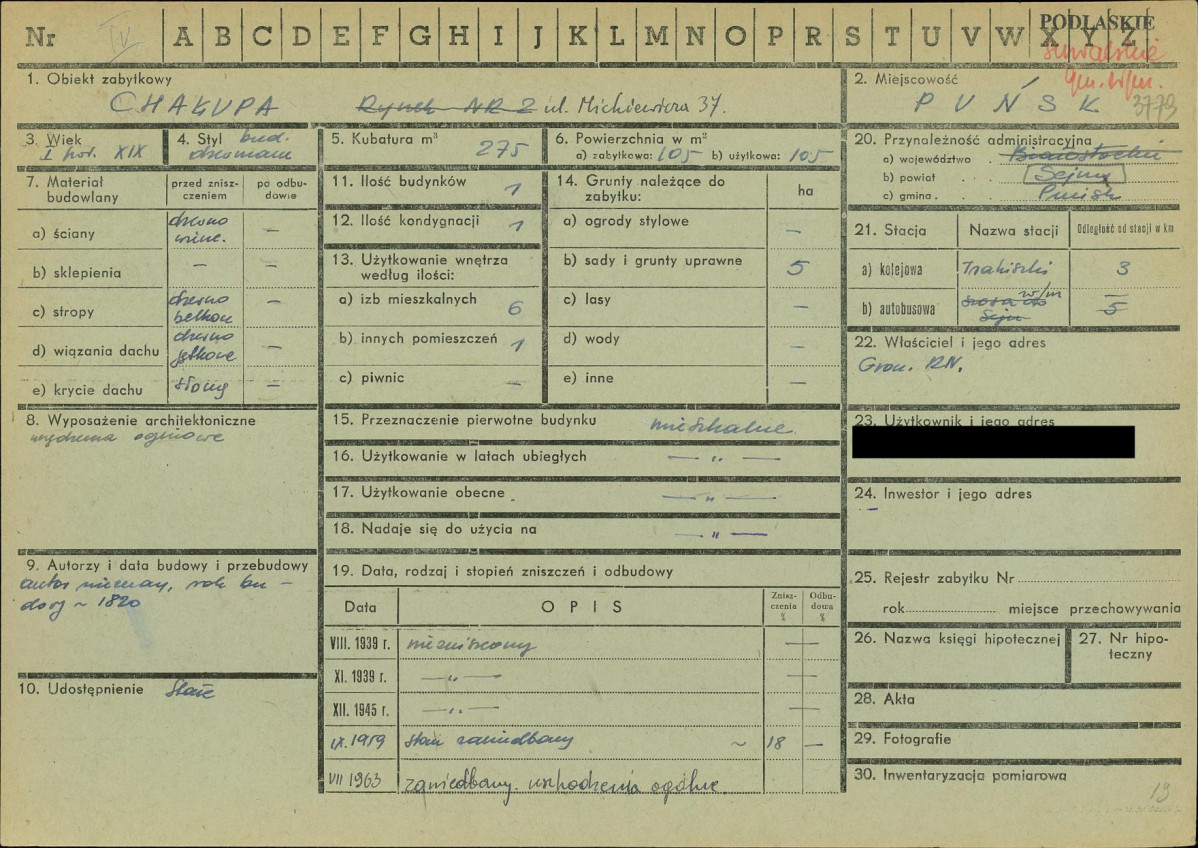 Nr IV A B C D E F G H I J K L M N O P R S T U V W X Y Z
PODLASKIE
suwalskie
gm. w/m.
1. Obiekt zabytkowy
CHAŁUPA Rynek NR 2 ul. Mickiewicza 37.
2. Miejscowość
PUŃSK 3773
3. Wiek
I poł. XIX
4. Styl bud.
drewniane
5. Kubatura m³ 275
6. Powierzchnia w m²
a) zabytkowa: 105 b) użytkowa: 105
20. Przynależność administracyjna
a) województwo . Białostockie
b) powiat . . . Sejny
c) gmina . . . Puńsk
7. Materiał budowlany
przed zniszczeniem
po odbudowie
a) ściany drewno —
b) sklepienia — —
c) stropy drewno belkow —
d) wiązania dachu drewno jętkowe —
e) krycie dachu słomą —
8. Wyposażenie architektoniczne
ogniowe
9. Autorzy i data budowy i przebudowy
autor nieznany, rok bu-
dowy ~ 1820
10. Udostępnienie stałe
11. Ilość budynków 1
12. Ilość kondygnacji 1
13. Użytkowanie wnętrza
według ilości:
a) izb mieszkalnych 6
b) innych pomieszczeń 1
c) piwnic —
14. Grunty należące do
zabytku: ha
a) ogrody stylowe —
b) sady i grunty uprawne 5
c) lasy —
d) wody —
e) inne —
15. Przeznaczenie pierwotne budynku mieszkalne.
16. Użytkowanie w latach ubiegłych — „ —
17. Użytkowanie obecne — „ —
18. Nadaje się do użycia na — „ —
19. Data, rodzaj i stopień zniszczeń i odbudowy
Data OPIS Zniszczenia % Odbudowa %
VIII. 1939 r. niezniszczony —
XI. 1939 r. — „ — —
XII. 1945 r. — „ — —
IX. 1959 stan zaniedbany ~ 18 —
VII 1963 zaniedbany. uszkodzenia ogólne.
21. Stacja Nazwa stacji Odległość od stacji w km
a) kolejowa Trakiszki 3
b) autobusowa w/m —
szosa do Sejn 5
22. Właściciel i jego adres
Grom. RN.
23. Użytkownik i jego adres
24. Inwestor i jego adres
—
25. Rejestr zabytku Nr
rok miejsce przechowywania
26. Nazwa księgi hipotecznej
27. Nr hipoteczny
28. Akta
29. Fotografie
30. Inwentaryzacja pamiarowa
19